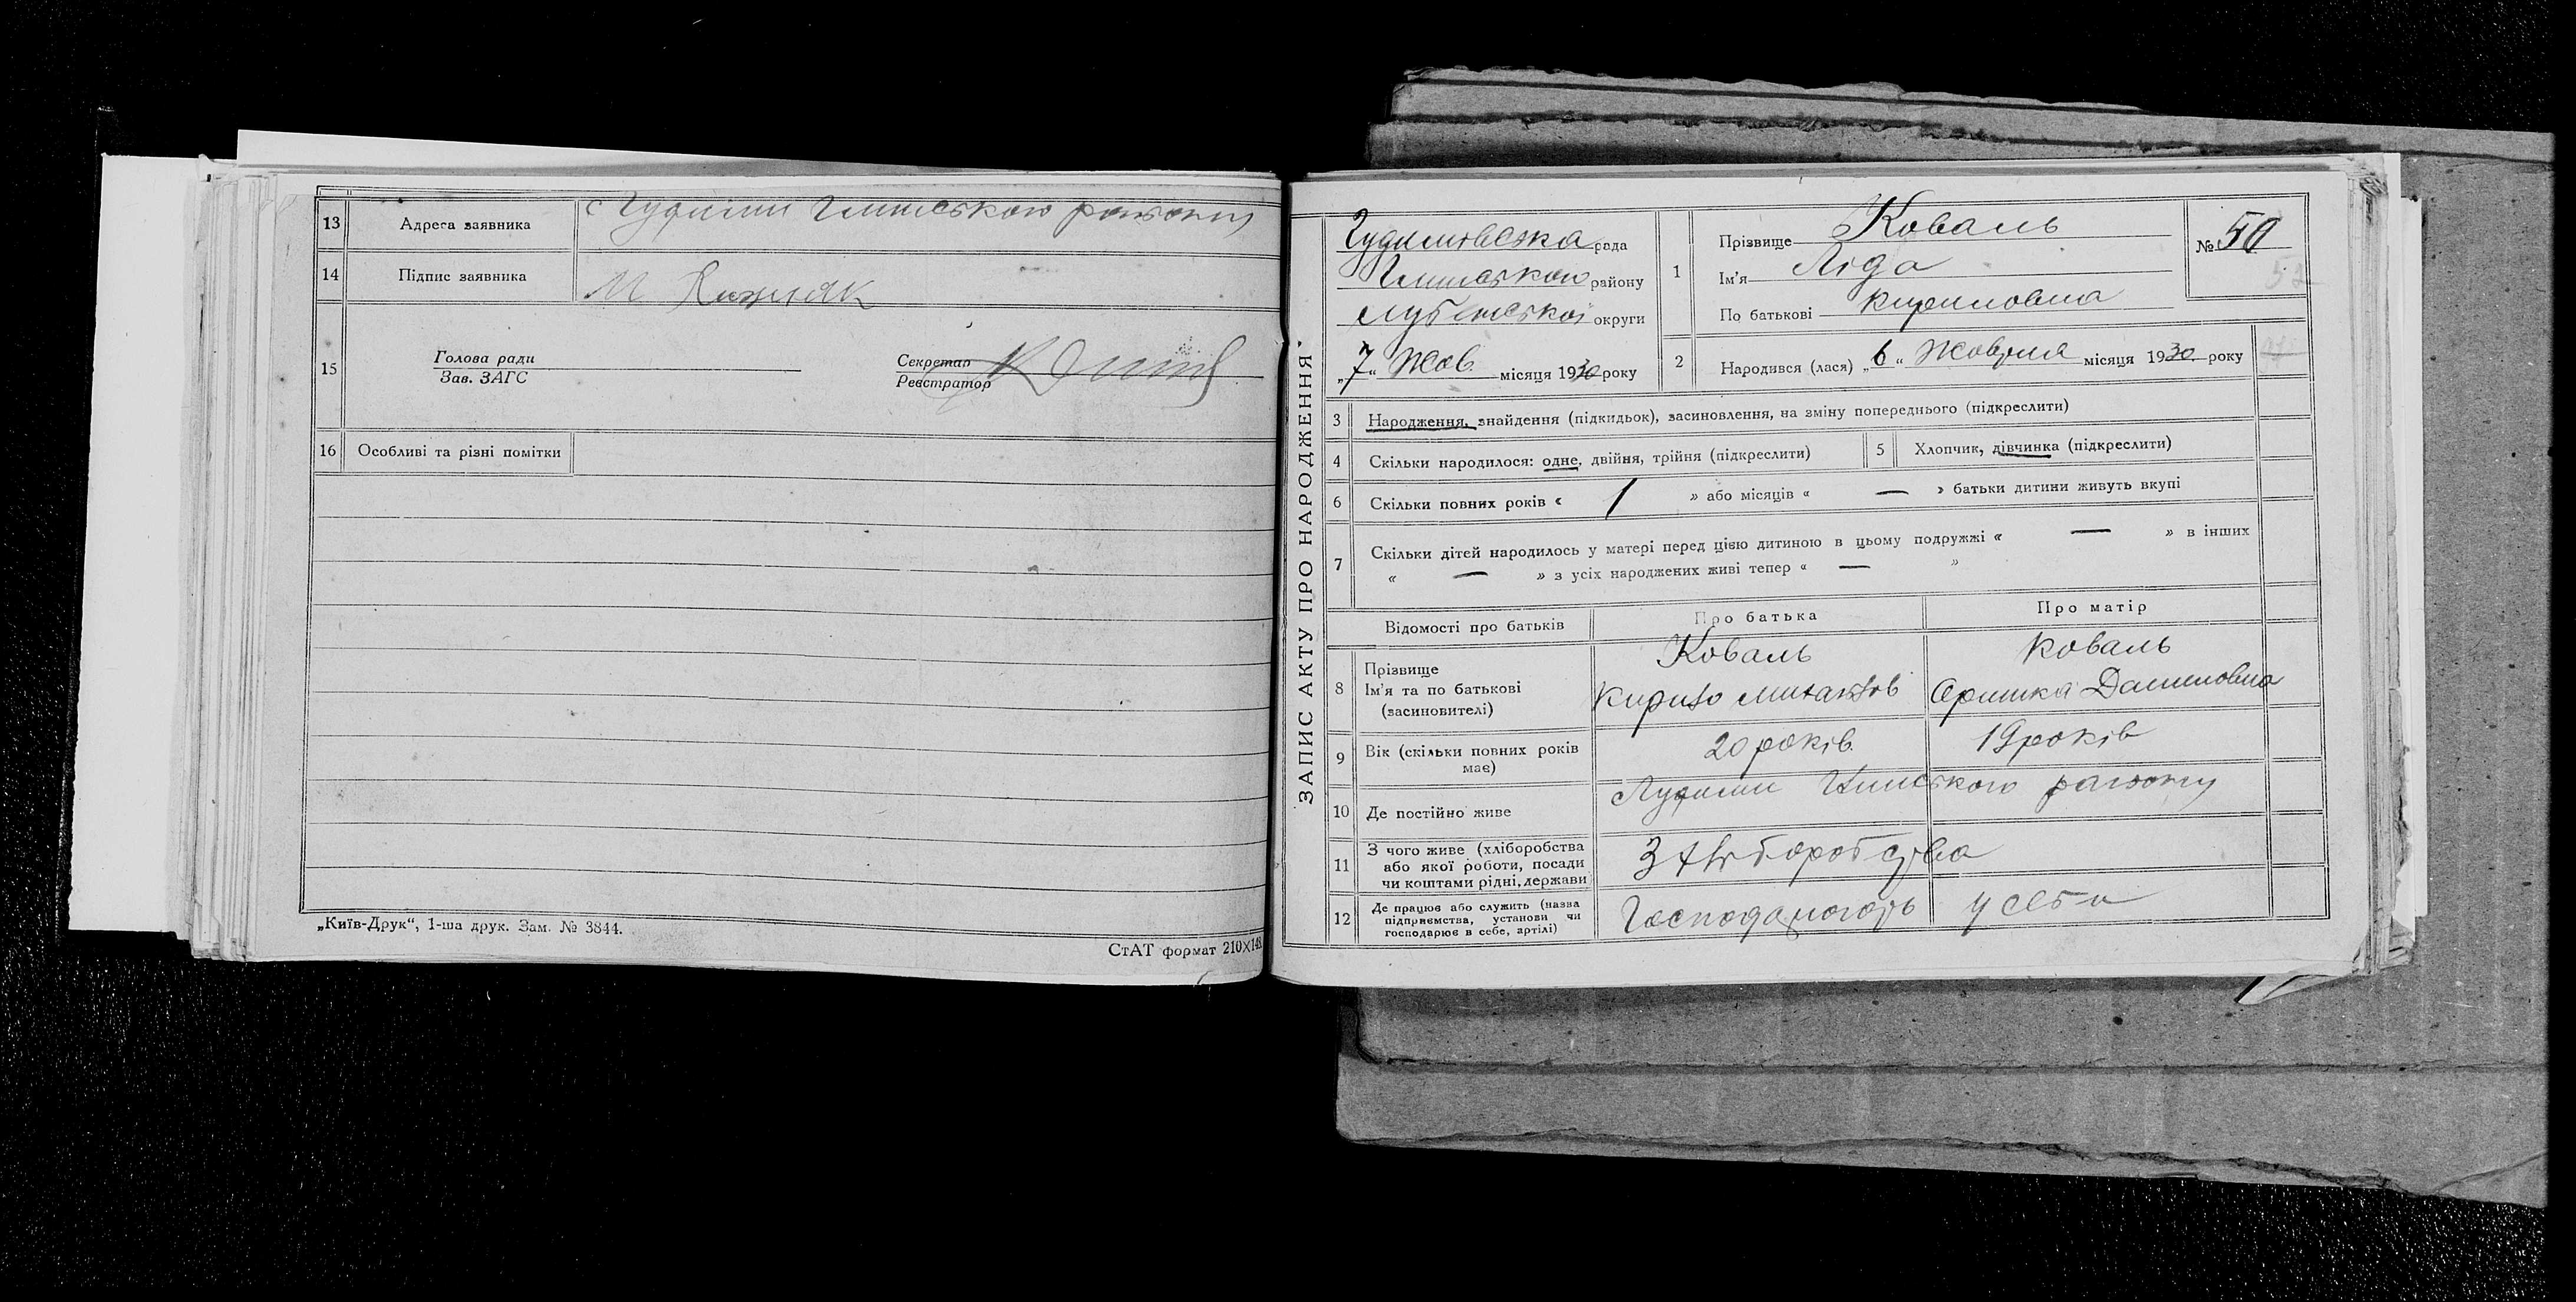 13 Адреса заявника с Гудими Глинського району
14 Підпис заявника М
15 Голова ради
Зав. ЗАГС
Секретар
Реєстратор
16 Особливі та різні помітки
„Київ-Друк“, 1-ша друк. Зам. № 3844.
СтАТ формат 210×148
ЗАПИС АКТУ ПРО НАРОДЖЕННЯ
рада
Глинської району
Лубенської округи
„7“ Жов. місяця 1930 року
1 Прізвище Коваль
Ім'я Ліда
По батькові Кириловна
№ 50
2 Народився (лася) „6“ Жовтня місяця 1930 року
3 Народження, знайдення (підкидьок), засиновлення, на зміну попереднього (підкреслити)
4 Скільки народилося: одне, двійня, трійня (підкреслити)
5 Хлопчик, дівчинка (підкреслити)
6 Скільки повних років « 1 » або місяців « — » батьки дитини живуть вкупі
7 Скільки дітей народилось у матері перед цією дитиною в цьому подружжі « — » в інших
« — » з усіх народжених живі тепер « — »
Відомості про батьків Про батька Про матір
8 Прізвище Коваль Коваль
Ім'я та по батькові Кирило Оришка Даниловна
(засиновителі)
9 Вік (скільки повних років 20 років 19 років
має)
10 Де постійно живе Гудими Глинського району
11 З чого живе (хліборобства З хліборобства
або якої роботи, посади
чи коштами рідні, держави
12 Де працює або служить (назва у себе
підприємства, установи чи
господарює в себе, артілі)